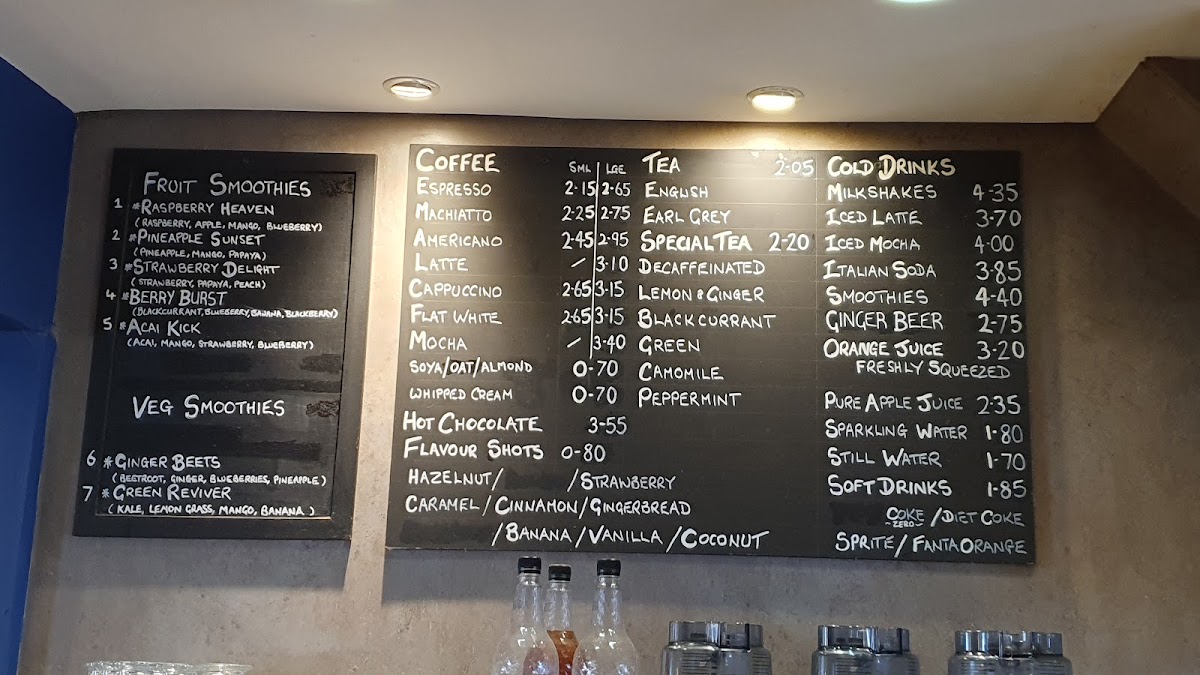 FRUIT SMOOTHIES
1 *RASPBERRY HEAVEN
(RASPBERRY, APPLE, MANGO, BLUEBERRY)
2 *PINEAPPLE SUNSET
(PINEAPPLE, MANGO, PAPAYA)
3 *STRAWBERRY DELIGHT
(STRAWBERRY, PAPAYA, PEACH)
4 *BERRY BURST
(BLACKCURRANT, BLUEBERRY, BANANA, BLACKBERRY)
5 *ACAI KICK
(ACAI, MANGO, STRAWBERRY, BLUEBERRY)
VEG SMOOTHIES
6 *GINGER BEETS
(BEETROOT, GINGER, BLUEBERRIES, PINEAPPLE)
7 *GREEN REVIVER
(KALE, LEMON GRASS, MANGO, BANANA)
COFFEE SML LGE
ESPRESSO 2-15 2-65
MACHIATTO 2-25 2-75
AMERICANO 2-45 2-95
LATTE / 3-10
CAPPUCCINO 2-65 3-15
FLAT WHITE 2-65 3-15
MOCHA / 3-40
SOYA/OAT/ALMOND 0-70
WHIPPED CREAM 0-70
HOT CHOCOLATE 3-55
FLAVOUR SHOTS 0-80
HAZELNUT/ /STRAWBERRY
CARAMEL/CINNAMON/GINGERBREAD
/BANANA/VANILLA/COCONUT
TEA 2-05
ENGLISH
EARL GREY
SPECIAL TEA 2-20
DECAFFEINATED
LEMON & GINGER
BLACKCURRANT
GREEN
CAMOMILE
PEPPERMINT
COLD DRINKS
MILKSHAKES 4-35
ICED LATTE 3-70
ICED MOCHA 4-00
ITALIAN SODA 3-85
SMOOTHIES 4-40
GINGER BEER 2-75
ORANGE JUICE 3-20
FRESHLY SQUEEZED
PURE APPLE JUICE 2-35
SPARKLING WATER 1-80
STILL WATER 1-70
SOFT DRINKS 1-85
COKE /DIET COKE
-ZERO-
SPRITE/FANTA ORANGE